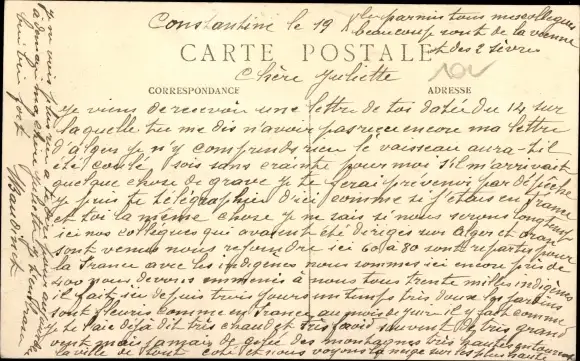 Constantine le 19 X
parmi tous mes collègues
beaucoup sont de la vienne
et des 2 sèvres
CARTE POSTALE
Chère Juliette
CORRESPONDANCE
ADRESSE
Je viens de recevoir une lettre de toi datée du 14 sur
laquelle tu me dis n'avoir pas reçu encore ma lettre
d'alger je n'y comprends rien le vaisseau aura-t-il
été coulé sois sans crainte pour moi s'il m'arrivait
quelque chose de grave je te ferai prévenir par dépêche
je puis te télégraphier d'ici comme si j'étais en france
et toi la même chose je ne sais si nous serons longtemps
ici nos collègues qui avaient été dirigés sur Alger et oran
sont venus nous rejoindre ici 60 à 80 sont repartis pour
la France avec les indigènes nous sommes ici encore près de
400 nous devons emmener à nous tous trente milles indigènes
il fait ici depuis trois jours un temps très doux les jardins
sont fleuris comme en France au mois de juin il y fait comme
je te l'ai déjà dit très chaud et très froid souvent de très grand
vent mais jamais de gelée des montagnes très hautes entourent
la ville de tout coté et nous voyons la neige sur les
Je ne vois plus rien à te dire pour aujourd'hui
à demain ma chère Juliette je t'embrasse
bien fort
Baudinet